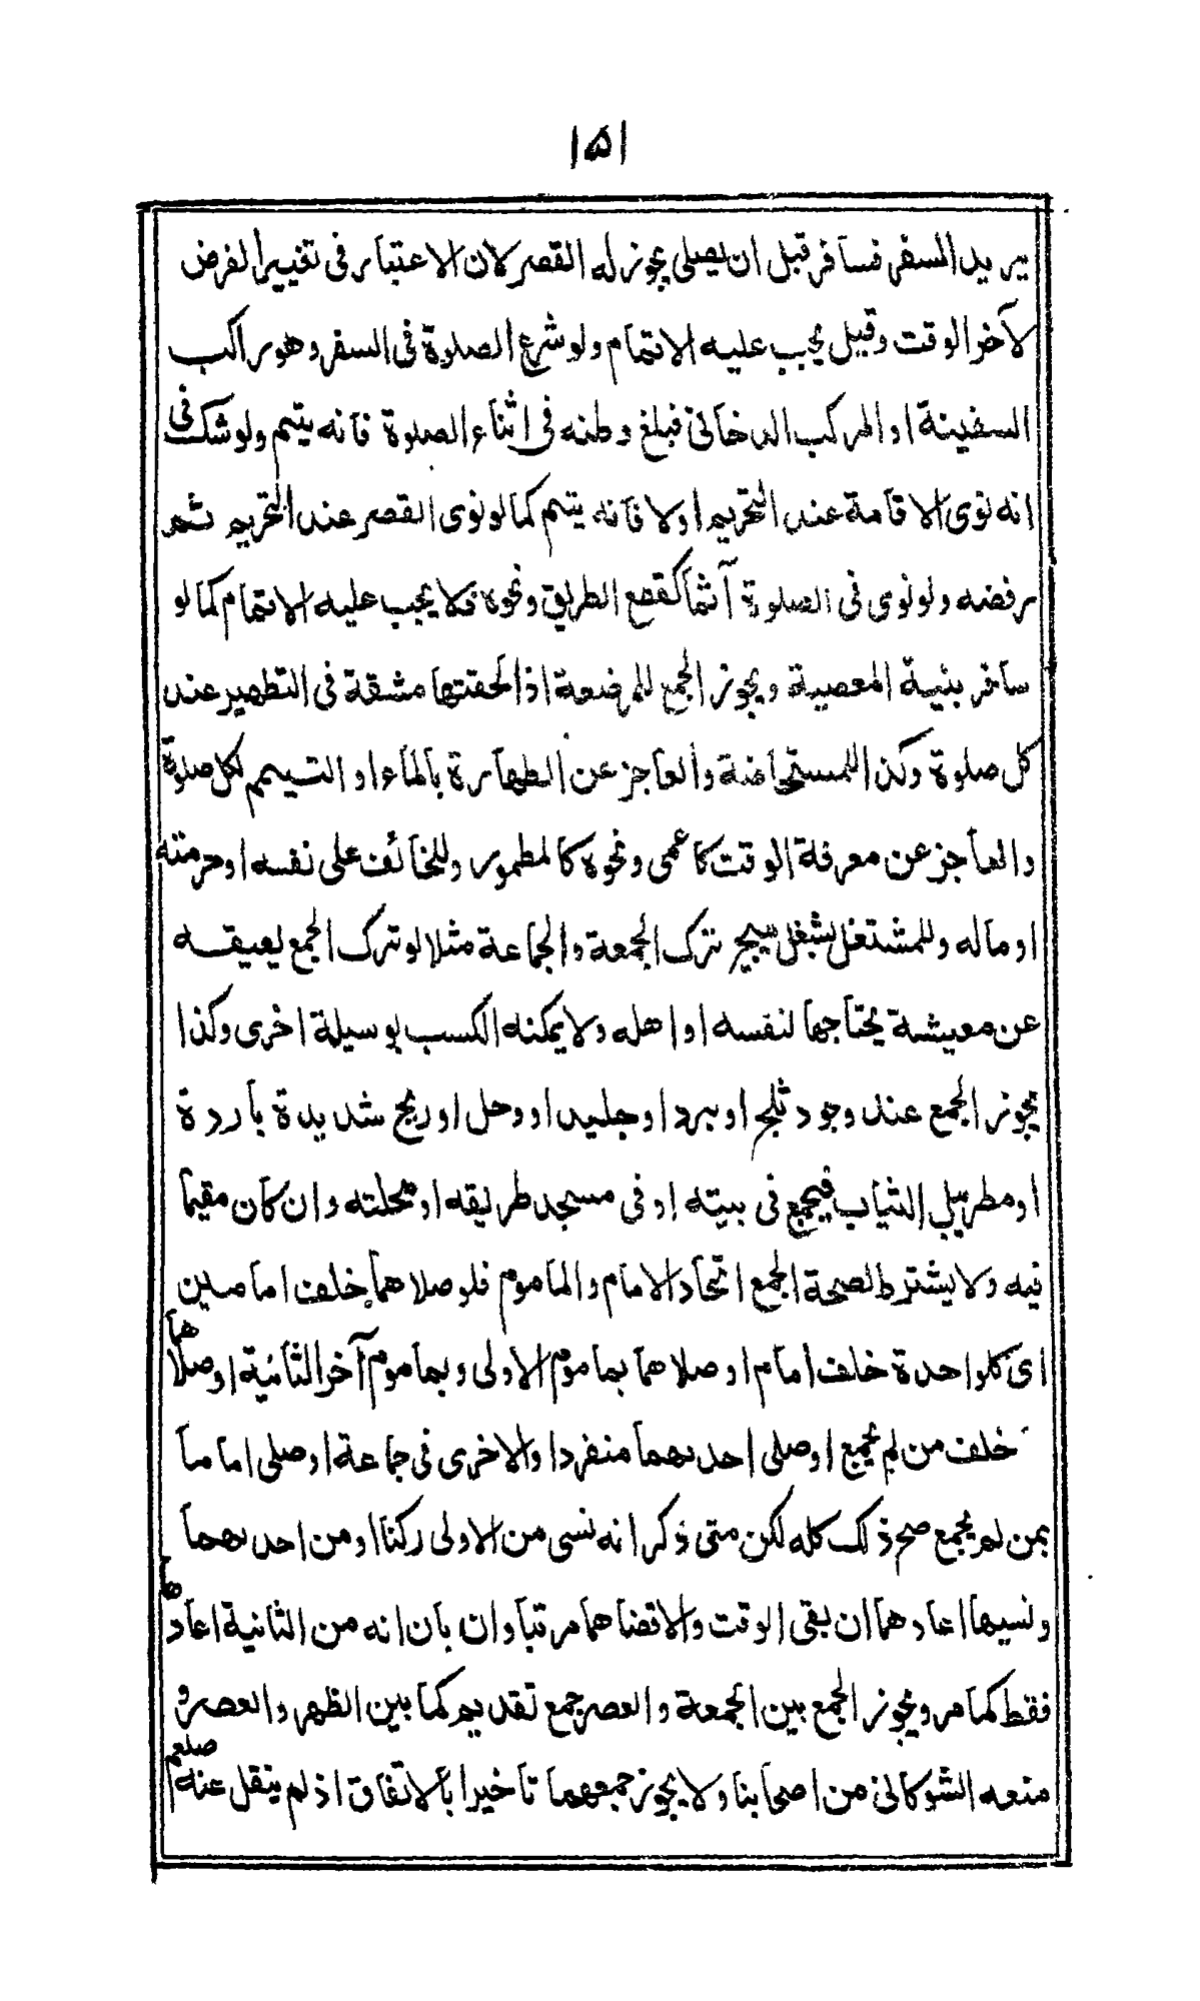 ١٥١
يريد السفر فسافر قبل ان يصلى يجوز له القصر لان الاعتبار فى تغيير الفرض
لآخر الوقت وقيل يجب عليه الاتمام ولو شرع الصلوة فى السفر وهو راكب
السفينة او المركب الدخانى فبلغ وطنه فى اثناء الصلوة فانه يتم ولو شك فى
انه نوى الاقامة عند التحريم اولا فانه يتم كما لو نوى القصر عند التحريم ثم
رفضه ولو نوى فى الصلوة آثما كقطع الطريق ونحوه فلا يجب عليه الاتمام كما لو
سافر بنية المعصية ويجوز الجمع للمرضعة اذا لحقتها مشقة فى التطهير عند
كل صلوة وكذا للمستحاضة والعاجز عن الطهارة بالماء او التيمم لكل صلوة
والعاجز عن معرفة الوقت كاعمى ونحوه كالمطمور وللخائف على نفسه او حرمته
او ماله وللمشتغل بشغل يبيح ترك الجمعة والجماعة مثلا لو ترك الجمع يعيقه
عن معيشة يحتاجها لنفسه او اهله ولا يمكنه الكسب بوسيلة اخرى وكذا
يجوز الجمع عند وجود ثلج او برد او جليد او وحل او ريح شديدة باردة
او مطر يبل الثياب فيجمع فى بيته او فى مسجد طريقه او محلته وان كان مقيما
فيه ولا يشترط لصحة الجمع اتحاد الامام والماموم فلو صلاهما خلف امامين
اى كل واحدة خلف امام او صلاهما بماموم الاولى وبماموم آخر الثانية او صلاهما
خلف من لم يجمع او صلى احدىهما منفردا والاخرى فى جماعة او صلى اماما
بمن لم يجمع صح ذلك كله لكن متى ذكر انه نسى من الاولى ركنا او من احدىهما
ونسيها اعادهما ان بقى الوقت والا قضاهما مرتبا وان بان انه من الثانية اعادها
فقط كما مر ويجوز الجمع بين الجمعة والعصر جمع تقديم كما بين الظهر والعصر و
منعه الشوكانى من اصحابنا ولا يجوز جمعهما تاخيرا بالاتفاق اذ لم ينقل عنه صلعم